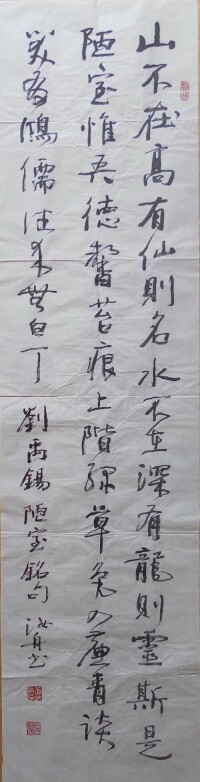 山不在高有仙則名水不在深有龍則靈斯是
陋室惟吾德馨苔痕上階綠草色入簾青談
笑有鴻儒往來無白丁
劉禹錫陋室銘句